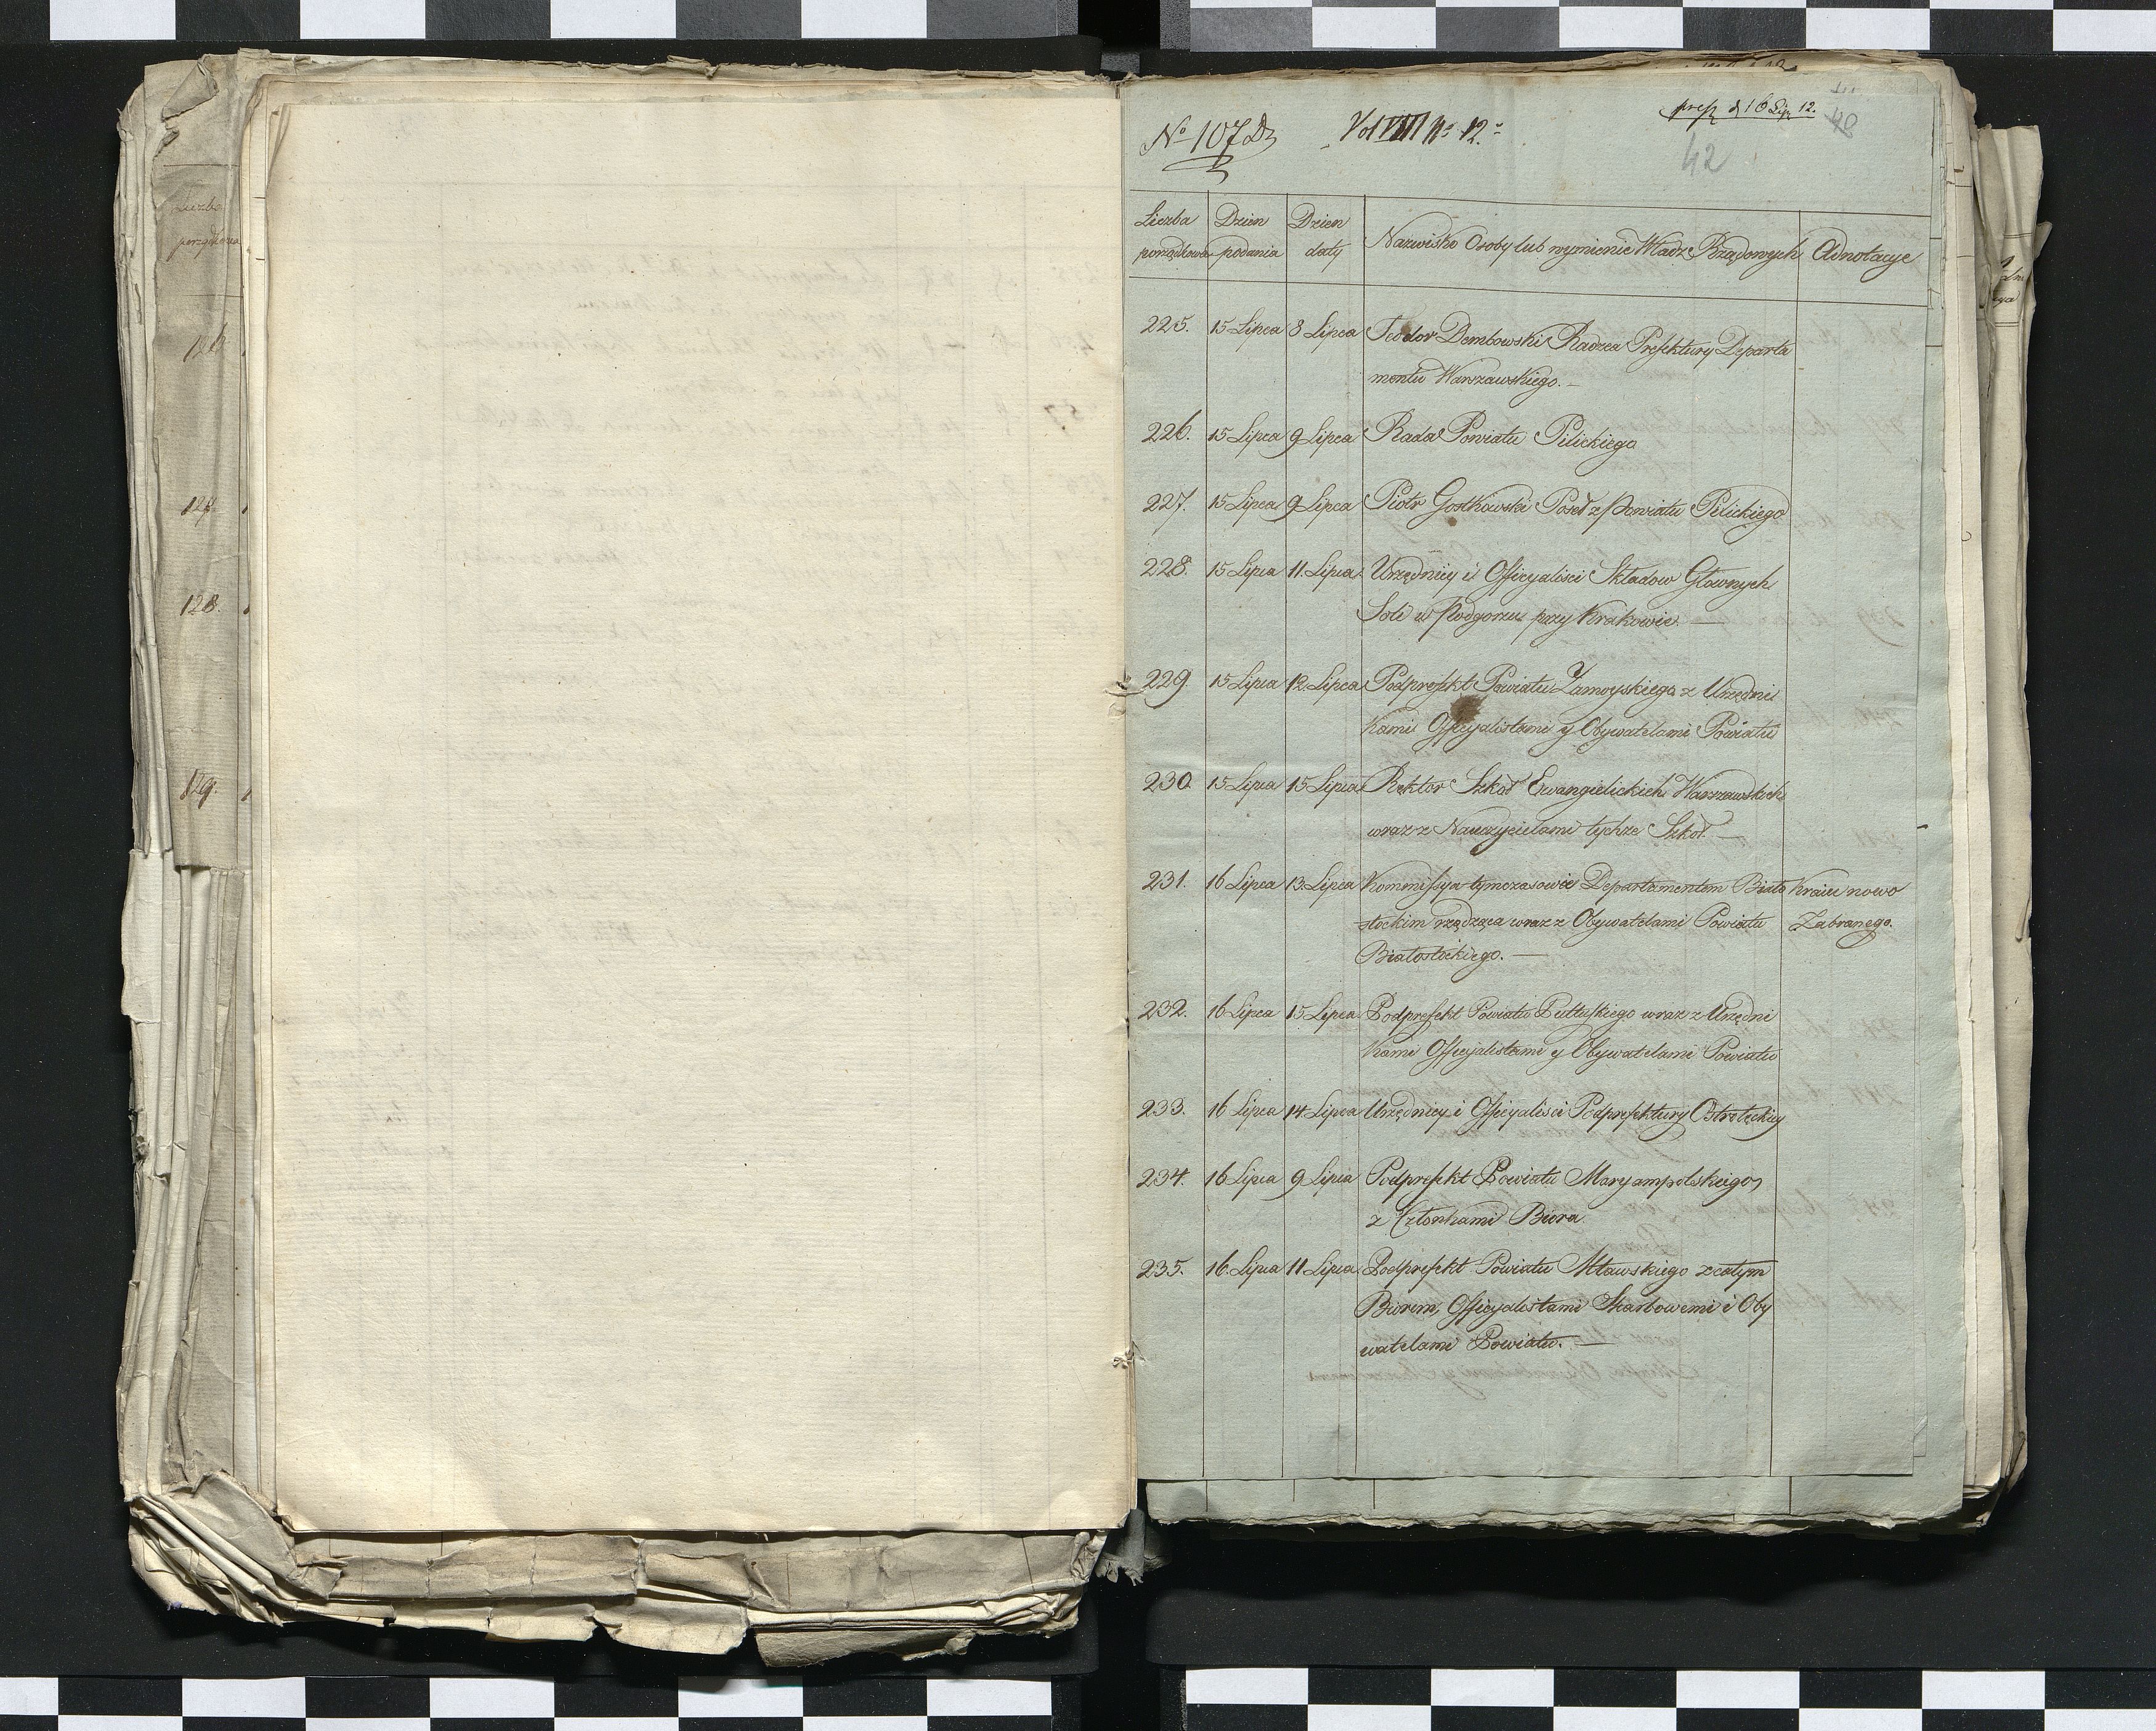 Liczba
porządkowa
126
127.
128.
129.
No 107 Dz
Vol VIII No 12.
42
48
Liczba porządkowa | Dzien podania | Dzien daty | Nazwisko Osoby lub wymienie Władz Rządowych | Adnotacye
225. 15 Lipca 8 Lipca Teodor Dembowski Radzca Prefektury Departa
mentu Warszawskiego. —
226. 15 Lipca 9 Lipca Rada Powiatu Pilickiego
227. 15 Lipca 9 Lipca Piotr Gostkowski Poseł z Powiatu Pilickiego
228. 15 Lipca 11. Lipca Urzędnicy i Officyaliści Składow Głownych
Soli w Podgorzu przy Krakowie. —
229 15 Lipca 12. Lipca Podprefekt Powiatu Zamoyskiego z Urzędni
kami Officyalistami y Obywatelami Powiatu
230 15 Lipca 15 Lipca Rektor Szkoł Ewangielickich Warszawskich
wraz z Nauczycielami tychże Szkoł. —
231. 16 Lipca 13. Lipca Kommissya tymczasowie Departamentem Biało Kraiu nowo
stockim rządząca wraz z Obywatelami Powiatu Zabranego.
Białostockiego. —
232. 16 Lipca 15 Lipca Podprefekt Powiatu Pułtuskiego wraz z Urzędni
kami Officyalistami y Obywatelami Powiatu
233. 16 Lipca 14 Lipca Urzędnicy i Officyaliści Podprefektury Ostrołęckiey
234. 16 Lipca 9 Lipca Podprefekt Powiatu Maryampolskiego,
z Członkami Biora
235. 16. Lipca 11 Lipca Podprefekt Powiatu Mławskiego z całym
Biorem, Officyalistami Skarbowemi i Oby
watelami Powiatu. —